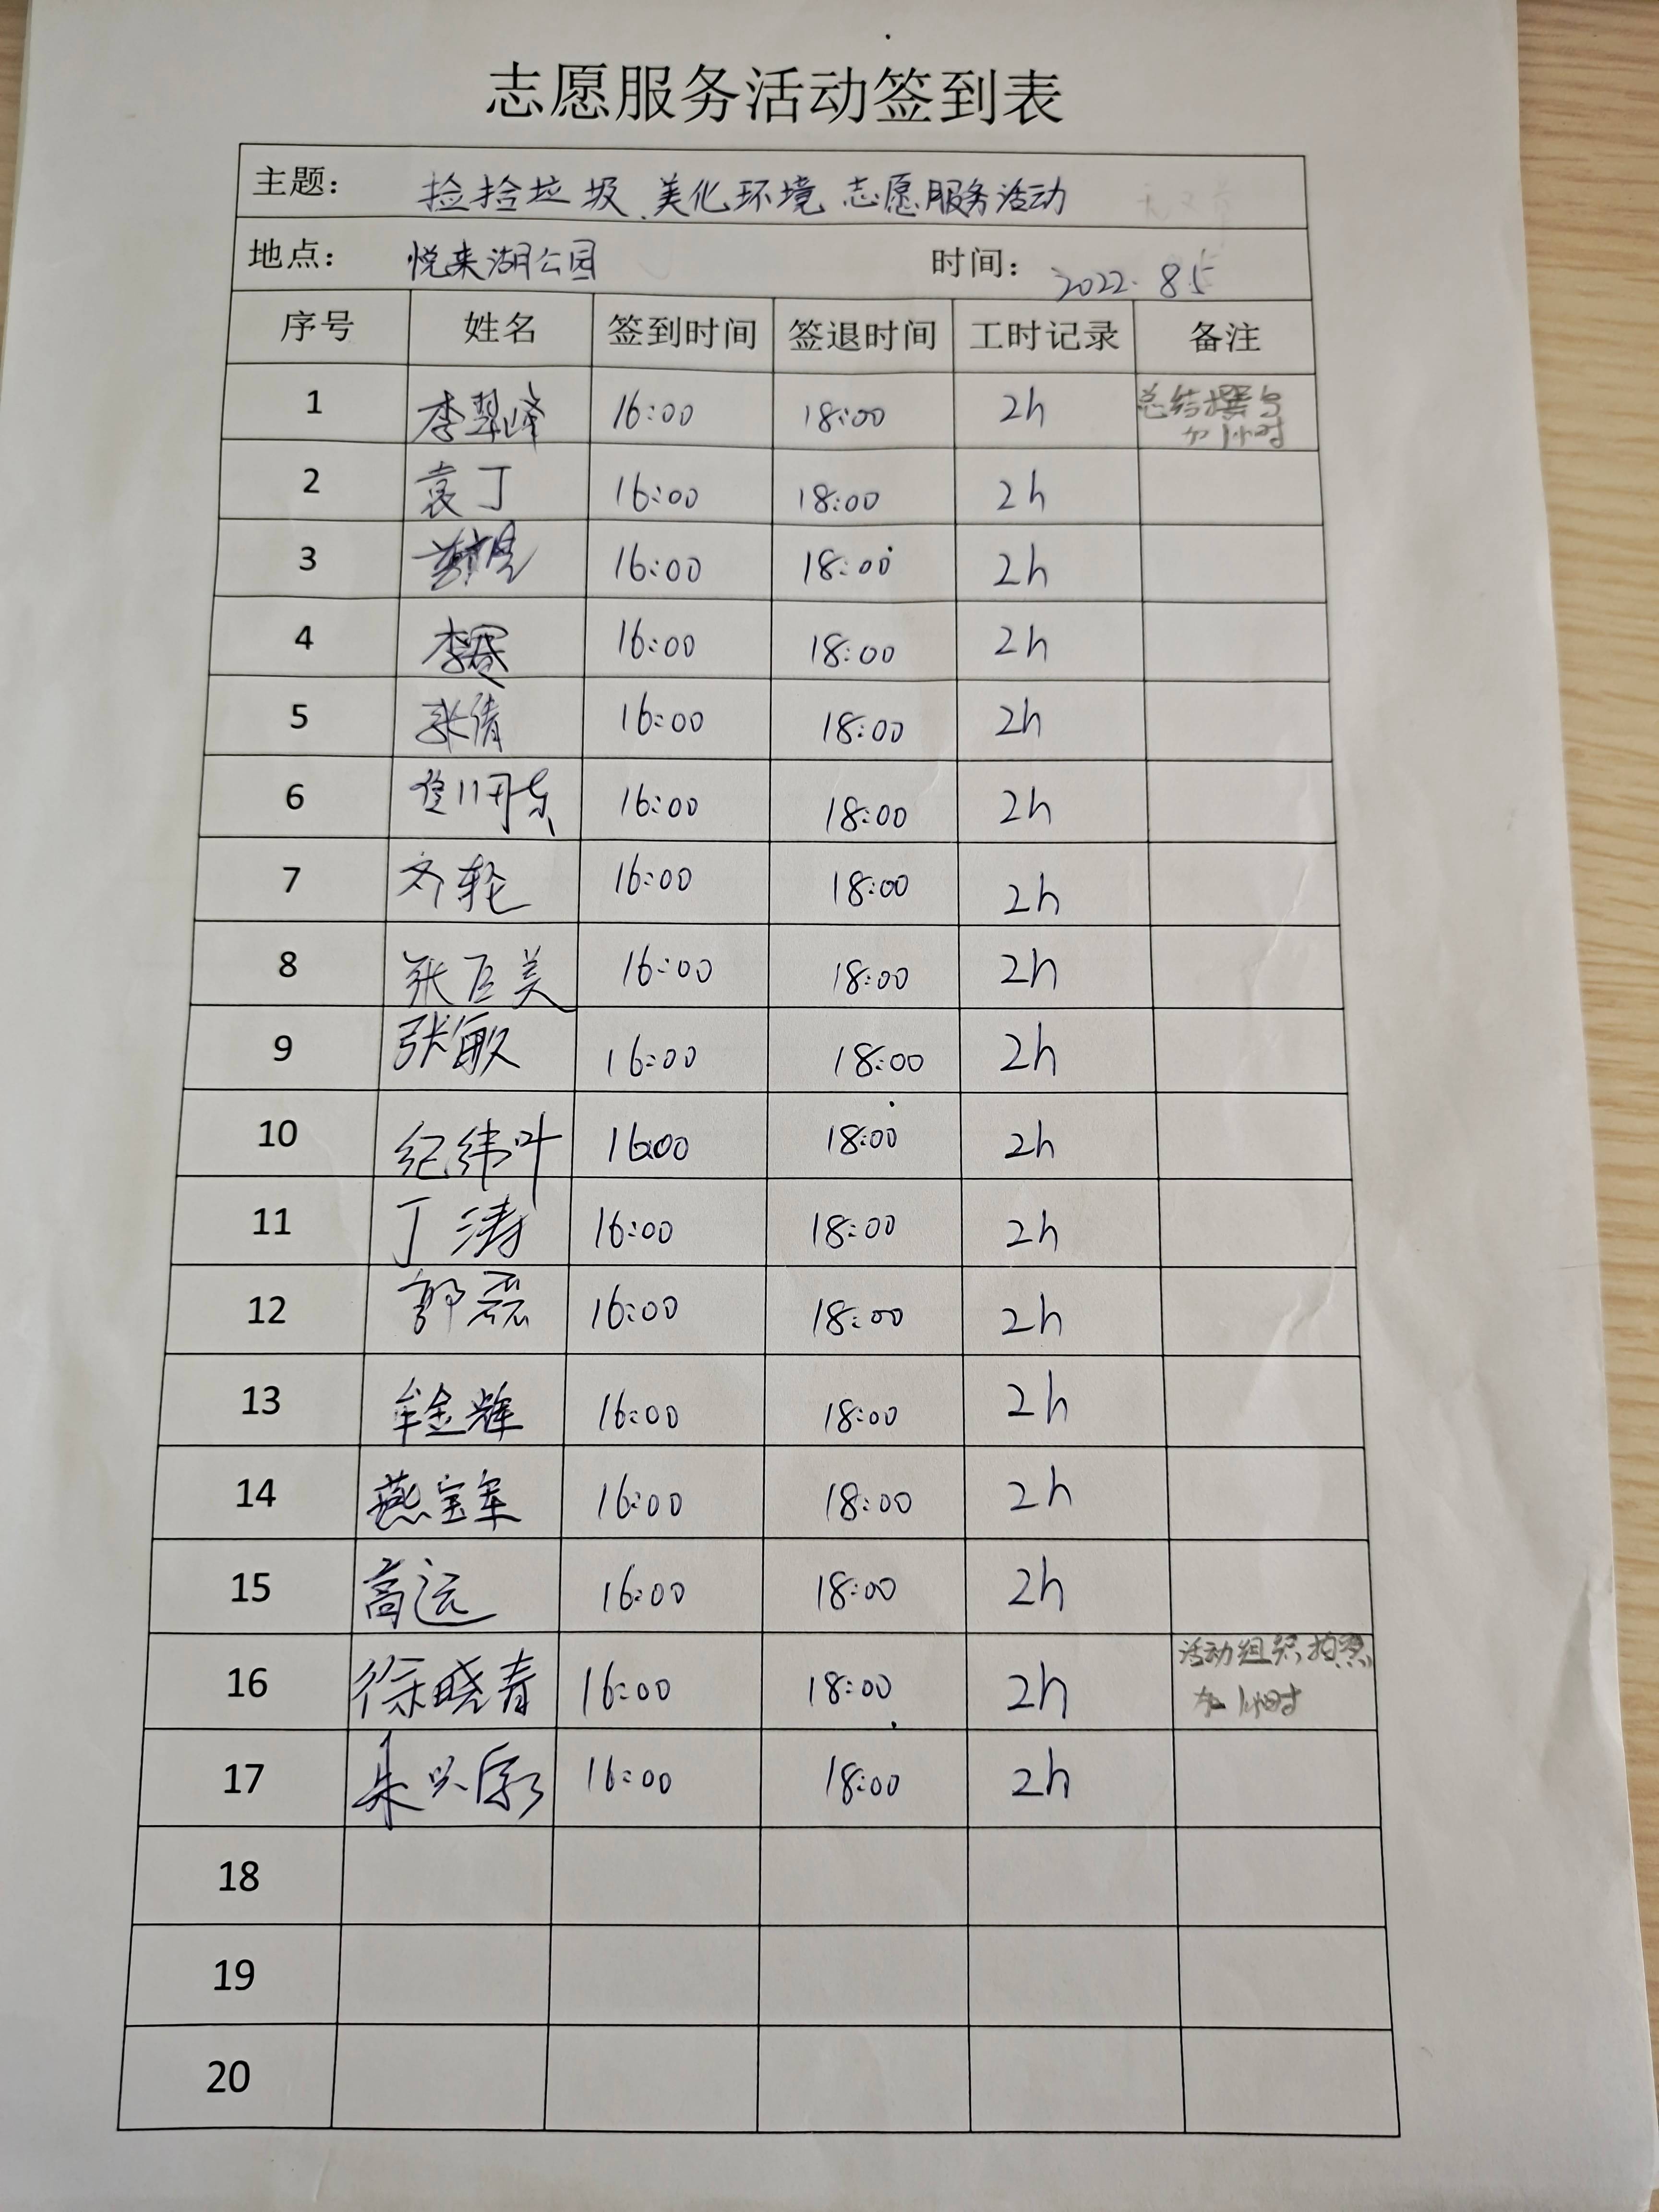 志愿服务活动签到表
主题： 捡拾垃圾、美化环境 志愿服务活动
地点： 悦来湖公园 时间： 2022.8.5
序号 姓名 签到时间 签退时间 工时记录 备注
1 李翠峰 16:00 18:00 2h 总结撰写
加1小时
2 袁丁 16:00 18:00 2h
3 16:00 18:00 2h
4 16:00 18:00 2h
5 张倩 16:00 18:00 2h
6 16:00 18:00 2h
7 齐轮 16:00 18:00 2h
8 张巨美 16:00 18:00 2h
9 张敏 16:00 18:00 2h
10 纪纬叶 16:00 18:00 2h
11 丁涛 16:00 18:00 2h
12 郭磊 16:00 18:00 2h
13 牟金辉 16:00 18:00 2h
14 燕宝军 16:00 18:00 2h
15 高运 16:00 18:00 2h
16 徐晓青 16:00 18:00 2h 活动组织、拍照
加1小时
17 16:00 18:00 2h
18
19
20